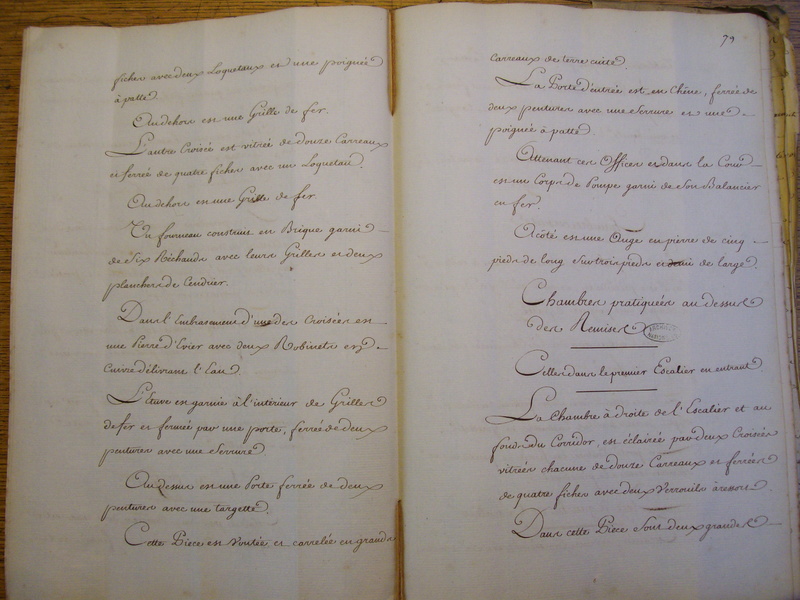 fiches avec deux Loquetaux et une poignée
à patte
Au dehors est une Grille de fer.
L'autre Croisée est vitrée de douze Carreaux
et ferrée de quatre fiches avec un Loquetau.
Au dehors est une Grille de fer
Un fourneau construit en Brique garni
de Six Réchauds avec leurs Grilles et deux
planchers de Cendrier.
Dans l'Embrasement d'une des Croisées est
une Pierre d'Evier avec deux Robinets en
Cuivre délivrant l'Eau
L'Etuve est garnie à l'intérieur de Grilles
de fer et fermée par une porte, ferrée de deux
pentures avec une Serrure
Au Dessus est une Porte ferrée de deux
pentures avec une targette.
Cette Piece est Voutée et carrelée en grands
79
Carreaux de terre cuite.
La Porte d'entrée est en Chêne, ferrée de
deux pentures avec une Serrure et une
poignée à patte
Attenant ces Offices et dans la Cour
est un Corps de Pompe garni de Son Balancier
en fer.
A côté est une Auge en pierre de cinq
pieds de long Sur trois pieds et demi de large.
Chambres pratiquées au dessus
des Remises
Celles dans le premier Escalier en entrant
La Chambre à droite de l'Escalier et au
fond du Corridor, est éclairée par deux Croisées
vitrées chacune de douze Carreaux et ferrées
de quatre fiches avec deux Verrouils à ressort.
Dans cette Piece Sont deux grandes